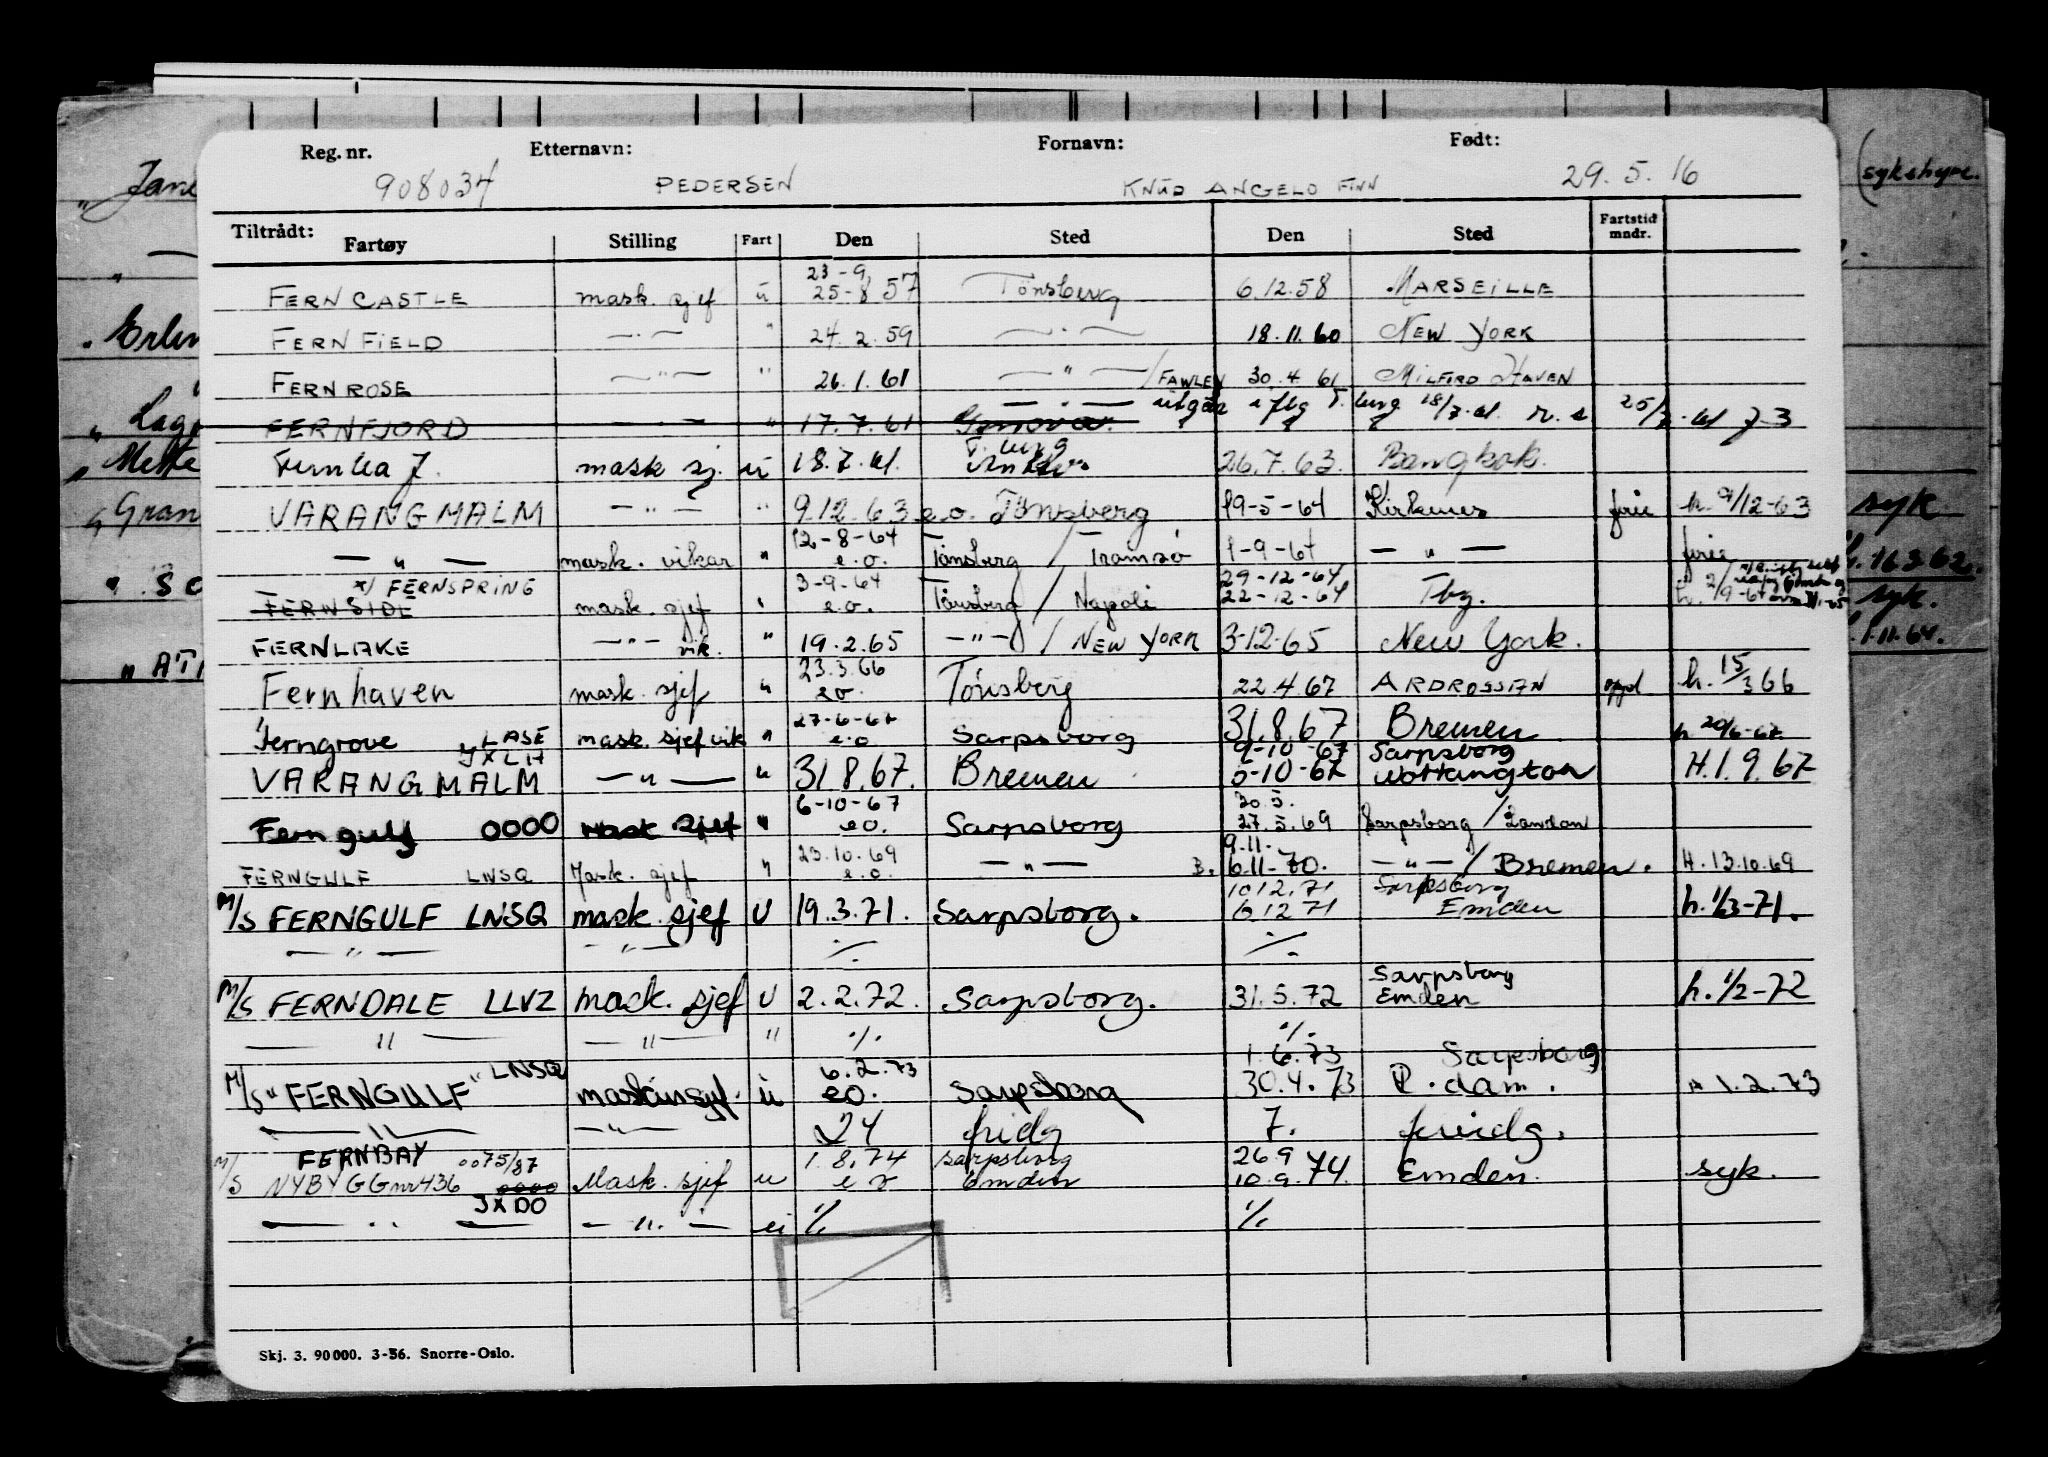 Reg. nr. Etternavn: Fornavn: Født:
908034 PEDERSEN KNUD ANGELO FINN 29.5.16 (sykehyre.
Tiltrådt: Fartøy Stilling Fart Den Sted Den Sted Fartstid mndr.
23-9
FERNCASTLE mask. sjef u 25-8 57 Tönsberg 6.12.58 MARSEILLE
FERNFIELD — · — " 24.2.59 — · — 18.11.60 NEW YORK
FERNROSE — " — " 26.1.61 — " — / FAWLEY 30.4.61 MILFORD HAVEN
FERNFJORD — · — " 17.7.61 Genova. — · — utgår 18/7-61 25/7-61
T. berg
Fernlea J. mask sj. u 18.7.61. 26.7.63. Bangkok.
VARANGMALM — " — " 9.12.63 e.o. Tönsberg 19-5-64 Kirkenes ferie h. 9/12-63
12-8-64
— " — mask. vikar " e.o. Tönsberg / Tromsö 1-9-64 — " — ferie
x/ FERNSPRING 3-9-64 29-12-64
FERNSIDE mask. sjef " e.o. Tönsberg / Napoli 22-12-64 Tbg. h. 2/9-64
FERNLAKE — " — vik. " 19.2.65 — " — / NEW YORK 3-12-65 New York.
23.3.66
Fernhaven mask. sjef " eo. Tönsberg 22.4.67 ARDROSSAN oppd. h. 15/3 66
LASE 27-6-67
Ferngrove JXLH mask. sjef vik " e.o Sarpsborg 31.8.67 Bremen h. 20/6-67
9-10-67 Sarpsborg
VARANGMALM — " — " 31.8.67. Bremen 0-10-67 H.1.9.67
6-10-67 30.5.
Ferngulf OOOO Mask sjef " eo. Sarpsborg 27.5.69 Sarpsborg / London
23.10.69 9.11.
FERNGULF LNSQ Mask. sjef " e.o. — " — B. 6.11-70. — " — / Bremen. H. 13.10.69
10.12.71 Sarpsborg
M/S FERNGULF LNSQ mask. sjef U 19.3.71. Sarpsborg. 6.12 71 Emden h. 1/3-71.
— " — — " — ·/. ·/.
Sarpsborg
M/S FERNDALE LLVZ mask. sjef U 2.2.72. Sarpsborg. 31.5.72 Emden h. 1/2-72
— " — — " — " ·/. ·/.
LNSQ 6.2.73 1.6.73 Sarpsborg
M/S "FERNGULF" maskinsjef. u eo. Sarpsborg 30.4.73 R.dam. H 1.2.73
— " — — " — 24 fridg 7. fridg.
FERNBAY 0075/87 1.8.74 Sarpsborg 26.9
M/S NYBYGG nr 436 OOOO Mask. sjef u e o Emden 10.9.74. Emden. syk.
JXDO
— " — — " — ·/. ·/.
Skj. 3. 90000. 3-56. Snorre-Oslo.
Lag
Mette
Gran
syk
16.3.62.
syk.
1.11.64.